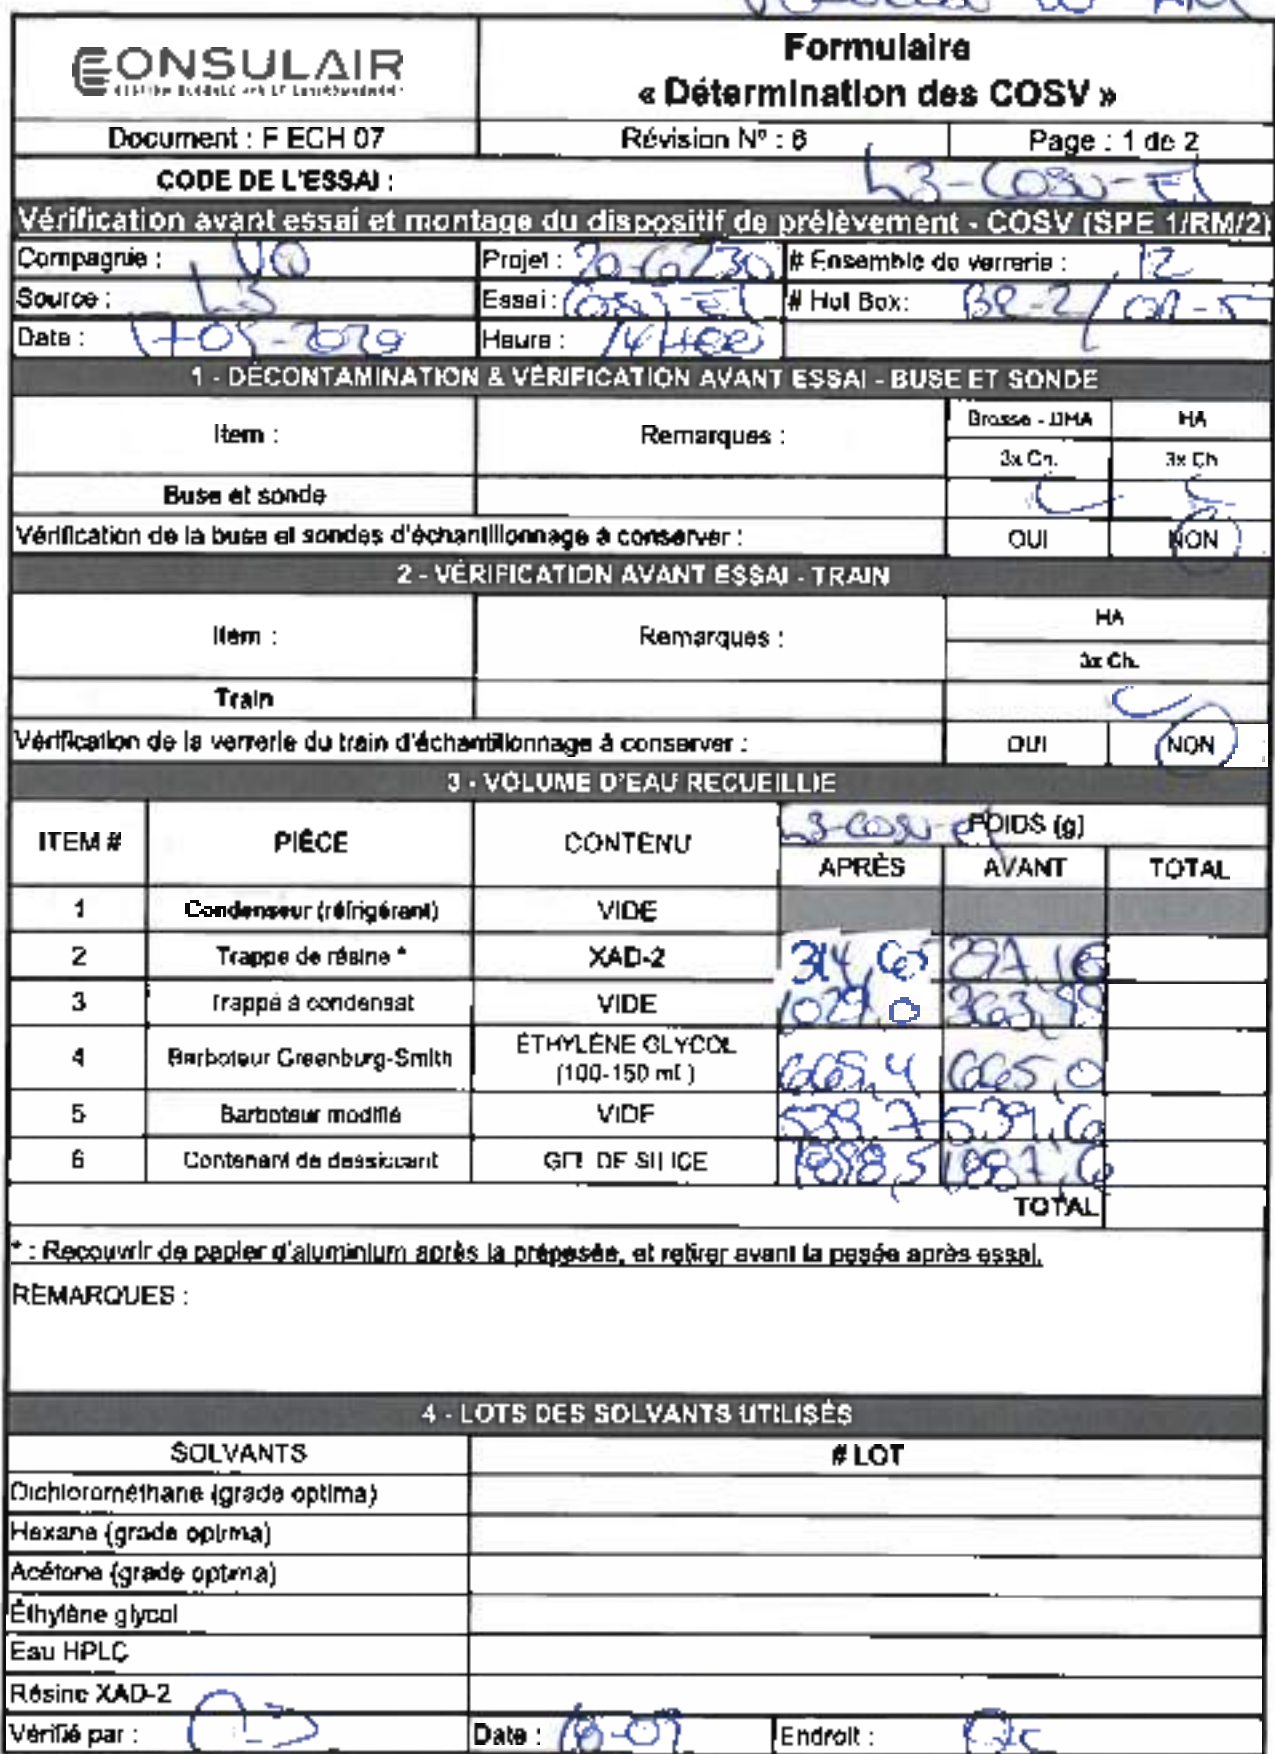 CONSULAIR
Formulaire
« Détermination des COSV »
Document : F ECH 07
Révision Nº : 6
Page : 1 de 2
CODE DE L'ESSAI :
L3-COSV-E1
Vérification avant essai et montage du dispositif de prélèvement - COSV (SPE 1/RM/2)
Compagnie : VQ
Projet : 20-6230
# Ensemble de verrerie : 12
Source : L3
Essai : COSV-E1
# Hot Box:
Date :
Heure :
1 - DÉCONTAMINATION & VÉRIFICATION AVANT ESSAI - BUSE ET SONDE
Item :
Remarques :
Brosse - DMA
HA
3x Ch.
3x Ch
Buse et sonde
Vérification de la buse et sondes d'échantillonnage à conserver :
OUI
NON
2 - VÉRIFICATION AVANT ESSAI - TRAIN
Item :
Remarques :
HA
3x Ch.
Train
Vérification de la verrerie du train d'échantillonnage à conserver :
OUI
NON
3 - VOLUME D'EAU RECUEILLIE
ITEM #
PIÈCE
CONTENU
L3-COSV-E1
POIDS (g)
APRÈS
AVANT
TOTAL
1
Condenseur (réfrigérant)
VIDE
2
Trappe de résine *
XAD-2
314,6
3
Trappe à condensat
VIDE
4
Barboteur Greenburg-Smith
ÉTHYLÈNE GLYCOL
(100-150 mL)
665,4
665,0
5
Barboteur modifié
VIDE
6
Contenant de dessiccant
GEL DE SILICE
TOTAL
* : Recouvrir de papier d'aluminium après la prépesée, et retirer avant la pesée après essai.
REMARQUES :
4 - LOTS DES SOLVANTS UTILISÉS
SOLVANTS
# LOT
Dichlorométhane (grade optima)
Hexane (grade optima)
Acétone (grade optima)
Éthylène glycol
Eau HPLC
Résine XAD-2
Vérifié par :
Date :
Endroit :